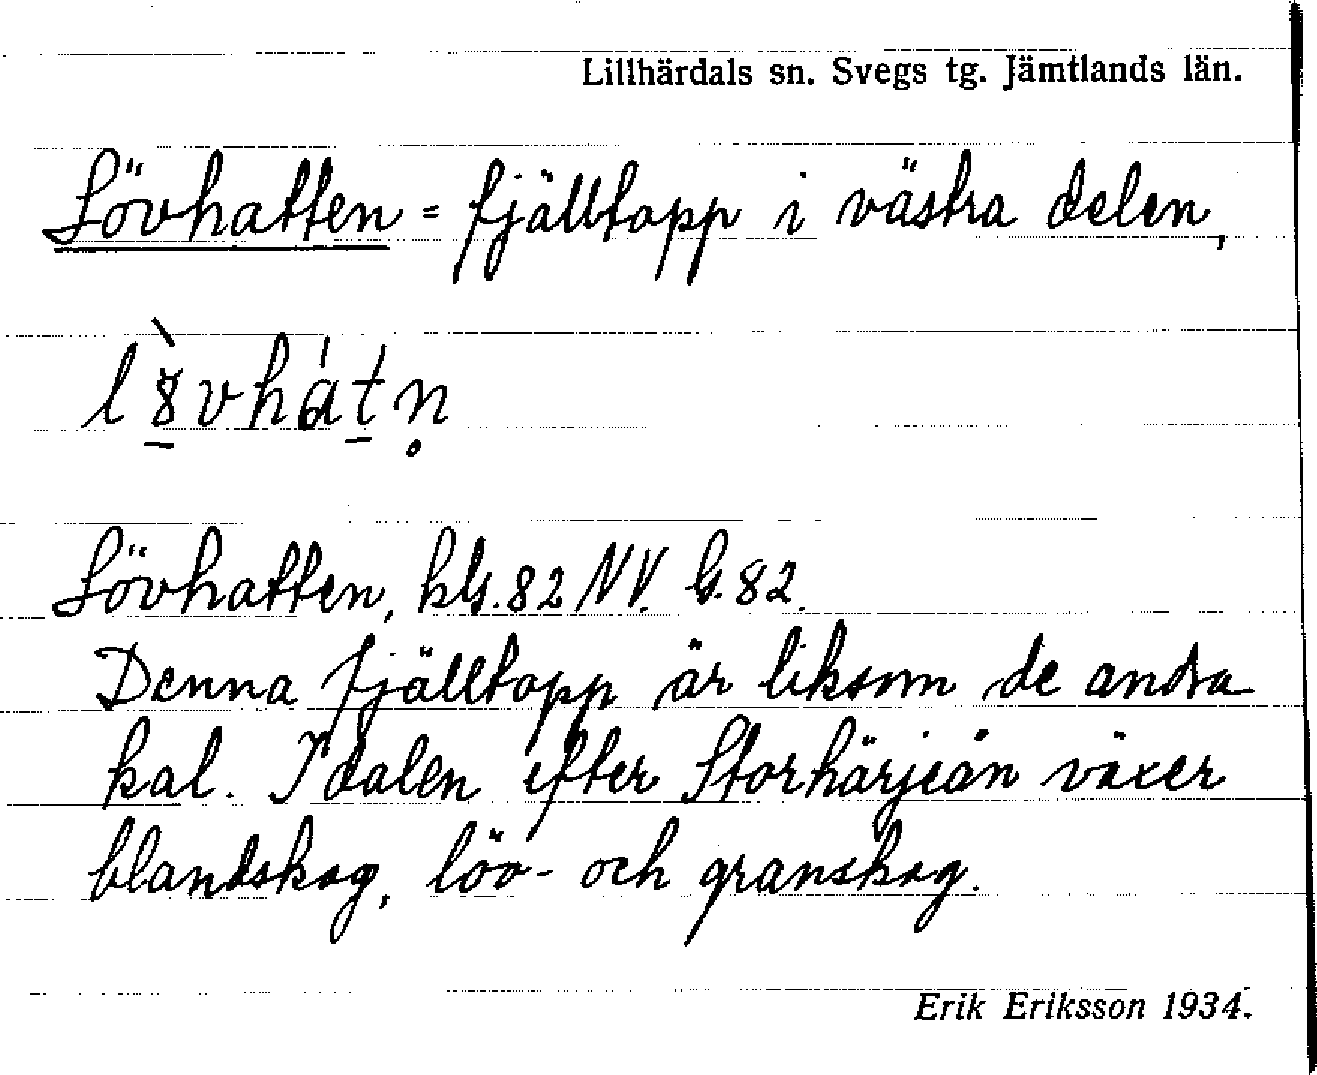 Lillhärdals sn. Svegs tg. Jämtlands län.
Lövhatten = fjälltopp i västra delen,
Lövhatten, kbl. 82 NV. G. 82.
Denna fjälltopp är liksom de andra
kal. I dalen efter Storhärjeån växer
blandskog, löv- och granskog.
Erik Eriksson 1934.